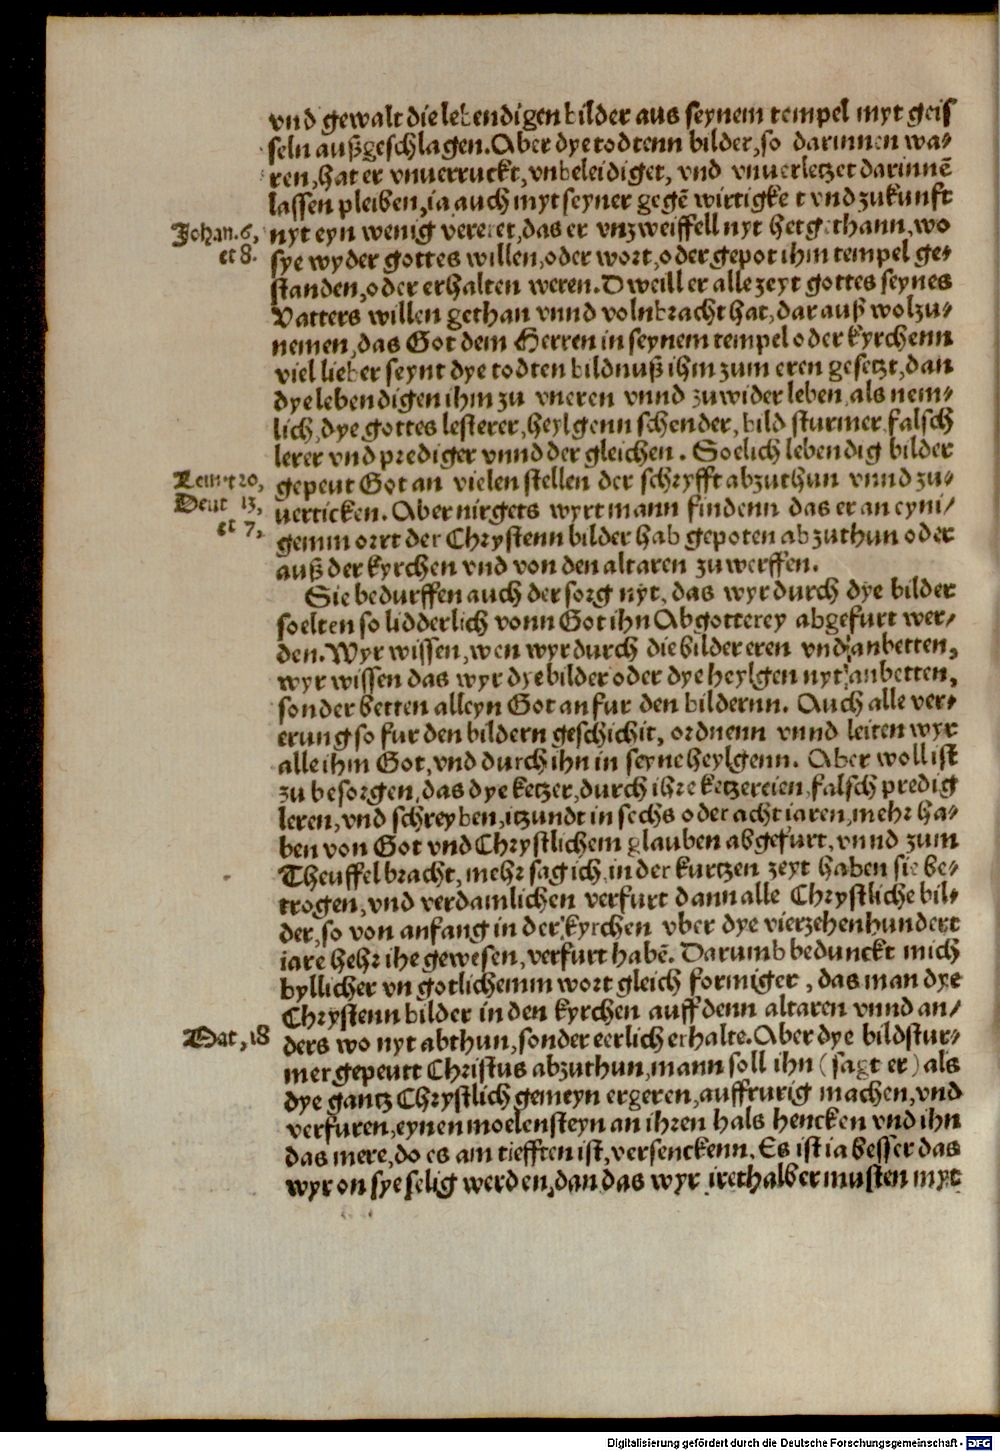 vnd gewalt die lebendigen bilder aus seynem tempel myt geis
seln außgeschlagen. Aber dye todtenn bilder, so darinnen wa-
ren, hat er vnuerruckt, vnbeleidiget, vnd vnuerletzet darinnē
lassen pleiben, ia auch myt seyner gegē wirtigkeit vnd zukunft
Johan. 6, et 8.
nyt eyn wenig vereret, das er vnzweiffell nyt het gethann, wo
sye wyder gottes willen, oder wort, oder gepot ihm tempel ge-
standen, oder erhalten weren. Dweill er alle zeyt gottes seynes
Vatters willen gethan vnnd volnbracht hat, dar auß wol zu-
nemen, das Got dem Herren in seynem tempel oder kyrchenn
viel lieber seynt dye todten bildnuß ihm zum eren gesetzt, dan
dye lebendigen ihm zu vneren vnnd zuwider leben, als nem-
lich, dye gottes lesterer, heylgenn schender, bild sturmer, falsch
lerer vnd prediger vnnd der gleichen. Soelich lebendig bilder
Leuit 20,
Deut 13,
et 7,
gepeut Got an vielen stellen der schryfft abzuthun vnnd zu-
uerticken. Aber nirgets wyrt mann findenn das er an eyni-
gemm orrt der Chrystenn bilder hab gepoten abzuthun oder
auß der kyrchen vnd von den altaren zuwerffen.
Sie bedurffen auch der sorg nyt, das wyr durch dye bilder
soelten so lidderlich vonn Got ihn Abgotterey abgefurt wer-
den. Wyr wissen, wen wyr durch die bilder eren vnd anbetten,
wyr wissen das wyr dye bilder oder dye heylgen nyt anbetten,
sonder betten alleyn Got an fur den bildernn. Auch alle ver-
erung so fur den bildern geschicht, ordnenn vnnd leiten wyr
alle ihm Got, vnd durch ihn in seyne heylgenn. Aber woll ist
zu besorgen, das dye ketzer, durch ihre ketzereien, falsch predig
leren, vnd schreyben, itzundt in sechs oder acht iaren, mehr ha-
ben von Got vnd Chrystlichem glauben abgefurt, vnnd zum
Theuffel bracht, mehr sag ich, in der kurtzen zeyt haben sie be-
trogen, vnd verdamlichen verfurt dann alle Chrystliche bil-
der, so von anfang in der kyrchen vber dye vierzehenhundert
iare hehr ihe gewesen, verfurt habē. Darumb bedunckt mich
byllicher vn gotlichemm wort gleich formiger, das man dye
Chrystenn bilder in den kyrchen auff denn altaren vnnd an-
Mat, 18
ders wo nyt abthun, sonder eerlich erhalte. Aber dye bildstur-
mer gepeutt Christus abzuthun, mann soll ihn (sagt er) als
dye gantz Chrystlich gemeyn ergeren, auffrurig machen, vnd
verfuren, eynen moelensteyn an ihren hals hencken vnd ihn
das mere, do es am tiefften ist, versenckenn. Es ist ia besser das
wyr on sye selig werden, dan das wyr irethalber musten myt
Digitalisierung gefördert durch die Deutsche Forschungsgemeinschaft - DFG